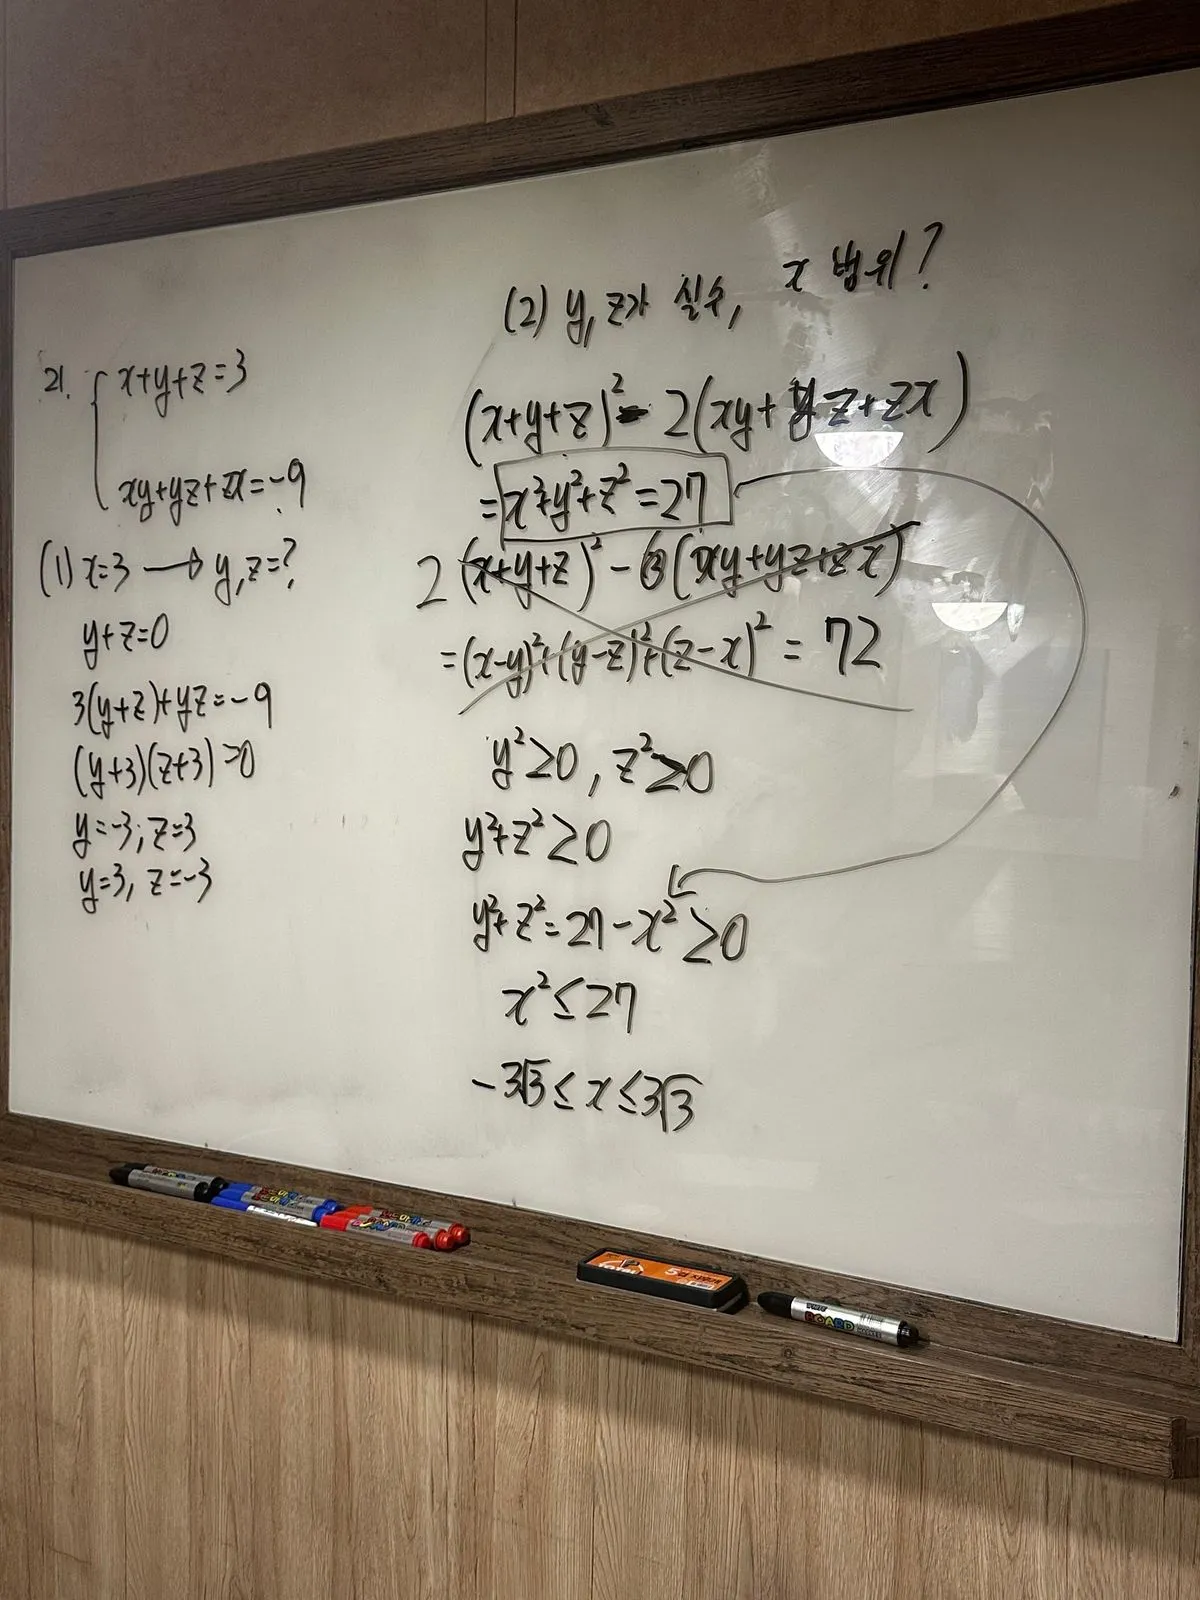 21. { x+y+z=3
xy+yz+zx=-9
(1) x=3 → y, z=?
y+z=0
3(y+z)+yz=-9
(y+3)(z+3)=0
y=-3, z=3
y=3, z=-3
(2) y, z가 실수, x 범위?
(x+y+z)²-2(xy+yz+zx)
=x²+y²+z²=27
2(x+y+z)²-6(xy+yz+zx)
=(x-y)²+(y-z)²+(z-x)²=72
y²≥0, z²≥0
y²+z²≥0
y²+z²=27-x²≥0
x²≤27
-3√3≤x≤3√3
BOARD